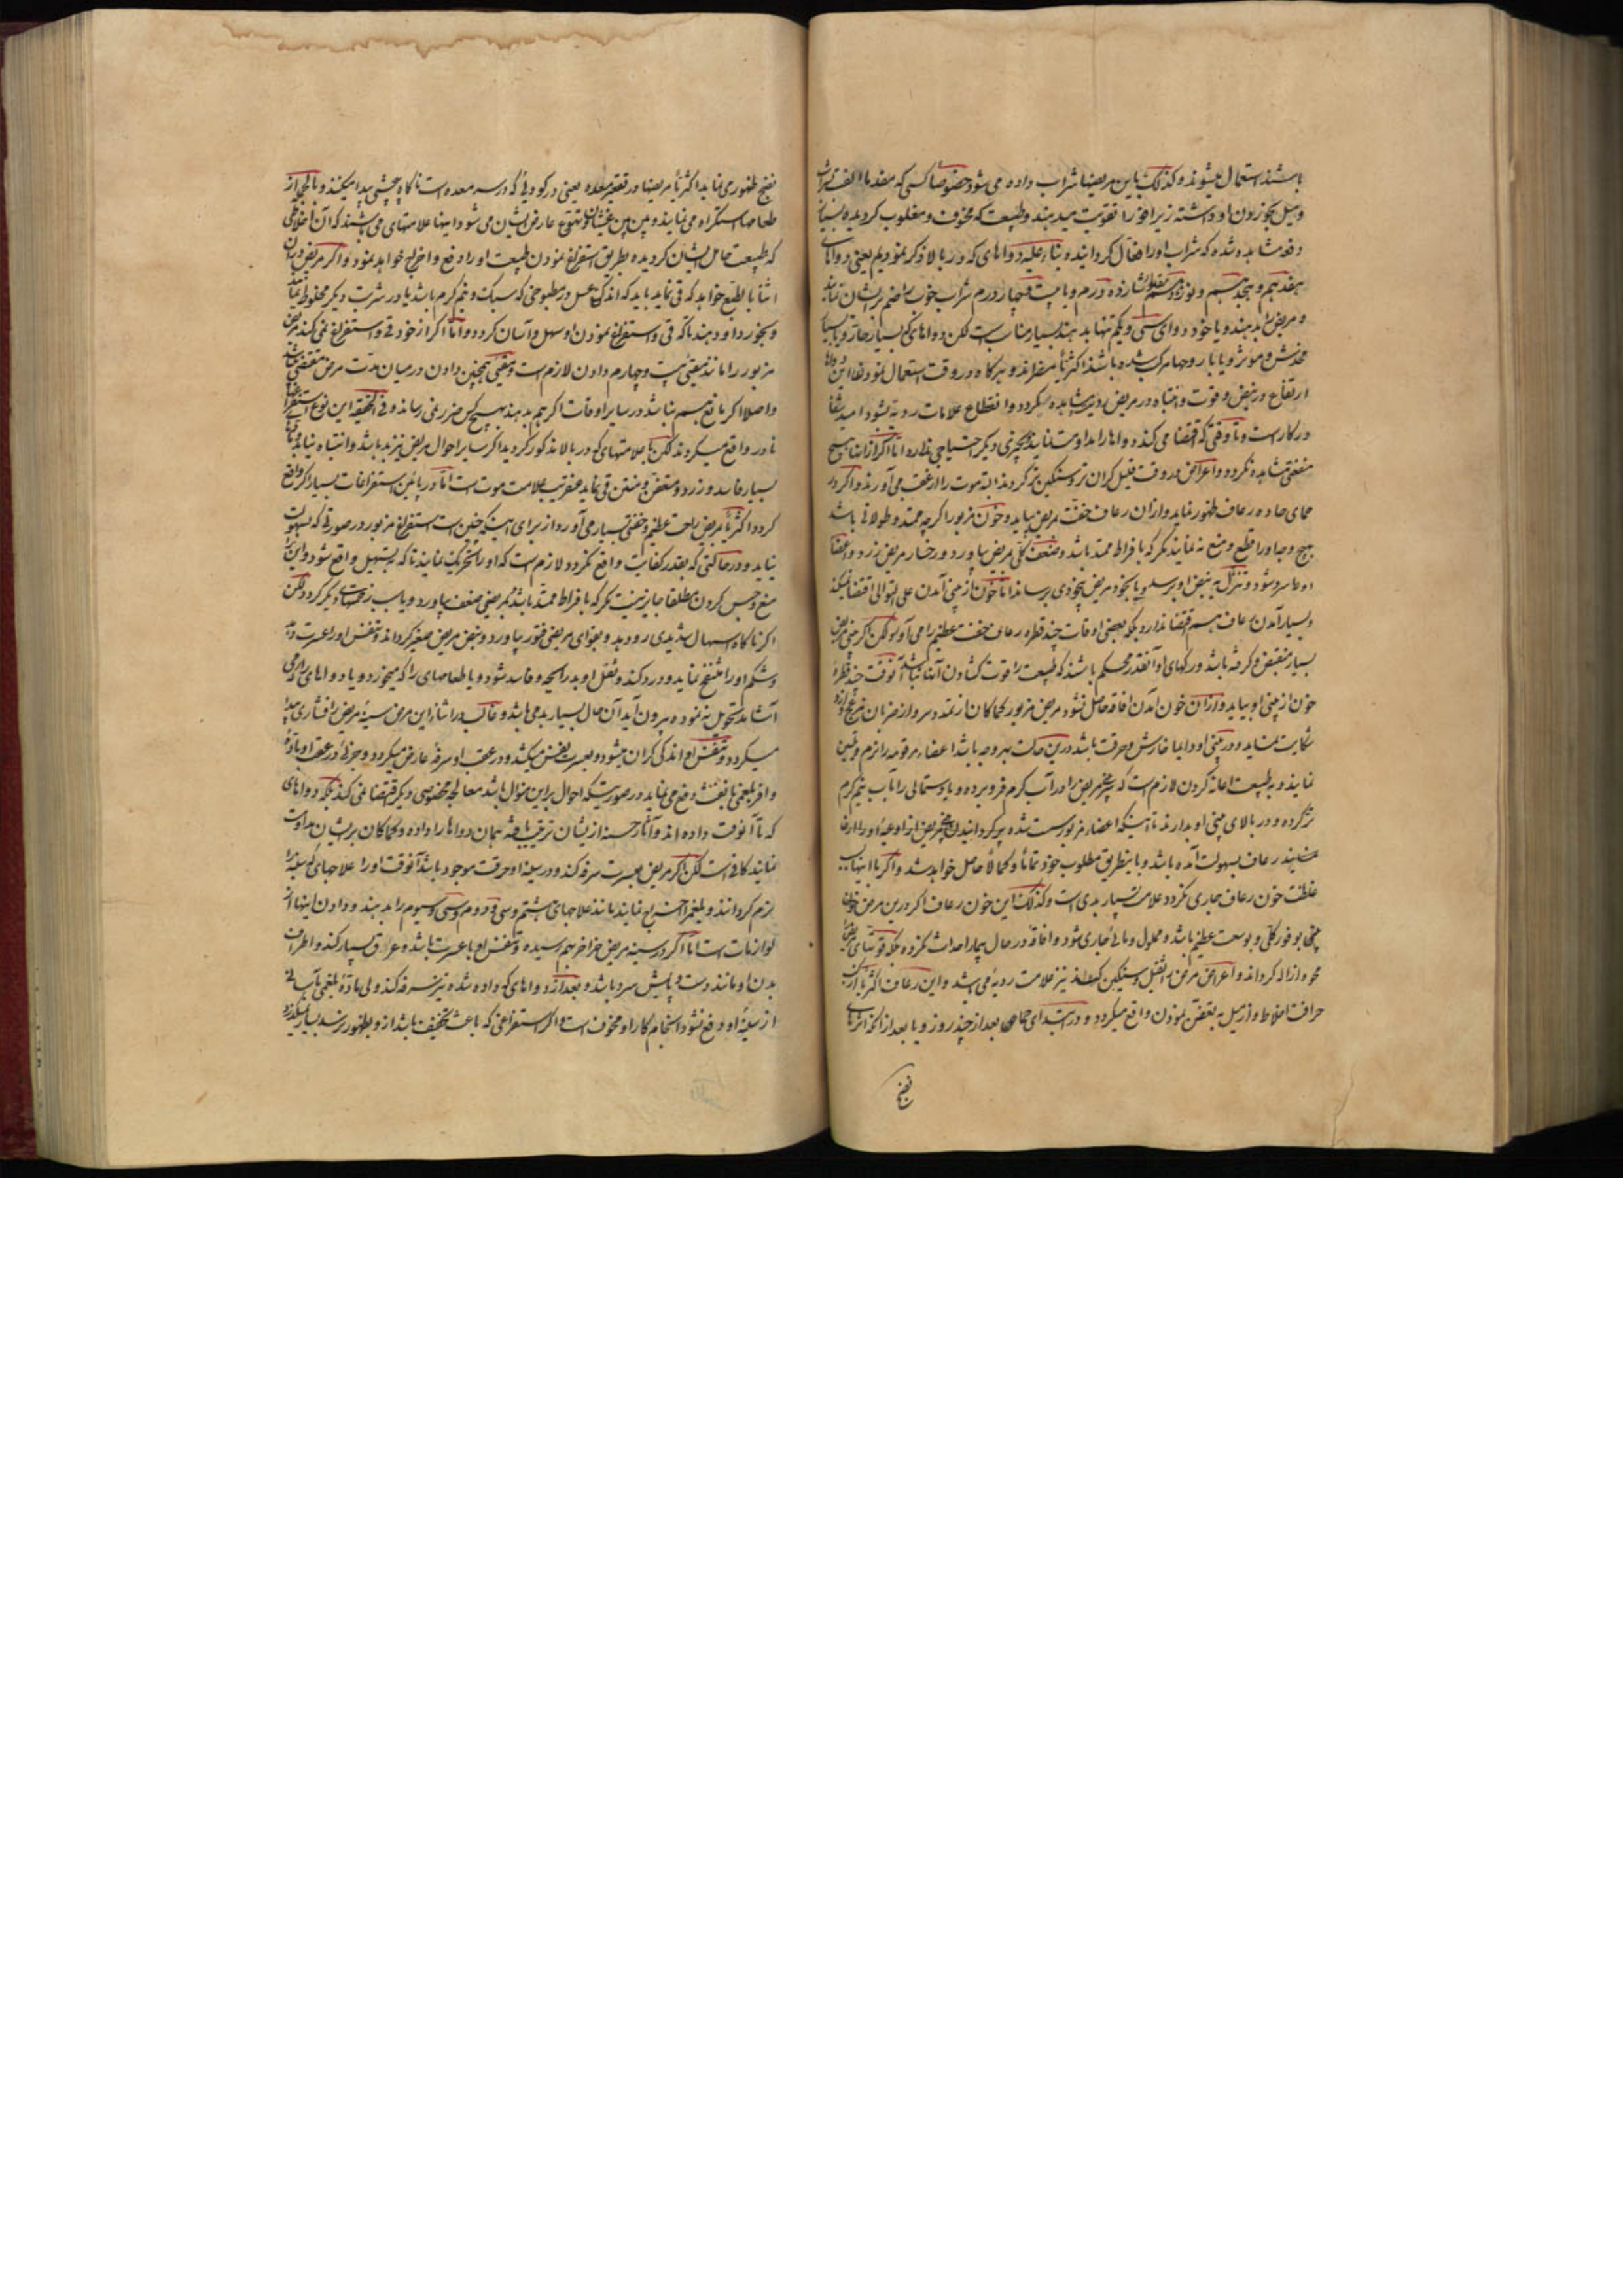 باشند استعمال میشوند و کذلک باین مریضها شراب داده می شود خصوصا کسی که مقدما الفت بشراب
و میل بخوردن او داشته زیرا خون را تقویت میدهند و طبیعت که مخوف و مغلوب کردیده بسیار
دفعه مشاهده شده که شراب او را فعال کردانیده و بناء علیه دواهای که در بالا ذکر نمودیم یعنی دواهای
هفدهم و هجدهم و نوزدهم شازده درم و یا بیست و چهار درم شراب خوب
و مریض را بدهند و یا خود دوای سی و یکم تنها بدهند بسیار مناسب است لکن دواهای که بسیار حار و یا بسیار
مخدش و موثر و یا بار روحها مرکب شده باشند اکثریا مضراند و هر کاه در وقت استعمال نمودن این دواها
ارتفاع در نبض و قوت و انتباه در مریض دیده مشاهده نکردد و انقطاع علامات ردیه نشود امید شفا
در کار است و تا وقتی که اقتضا می کند دواها را مداومت نمایند و بچیزی دیکر احتیاجی ندارد اما اکر از اینها هیچ
منفعتی مشاهده نکردد و اعراض در وقت قلیل کران تر و سنکین تر کردند البته موت را در عقب می آورند و اکر در
حمای حاده رعاف ظهور نماید و از ان رعاف خفت مریض بیاید و خون مزبور اکرچه ممتد و طولانی باشد
بهیچ وجه او را قطع و منع نه نمایند مکر که با فراط ممتد باشد و ضعف کلی مریض بیاورد و رخسار مریض زرد و اعضا
او سرد شود و تنزل به نبض او برسد و یا بخود مریض بیخودی برساند اما خون از بینی آمدن علی التوالی اقتضا نمیکند
و بسیار آمدن رعاف هم اقتضا ندارد بلکه بعضی اوقات چند قطره رعاف خفت عظیم را می آورد لکن اکر بینی مریض
بسیار منقبض و کرفته باشد و رکهای او آنقدر محکم باشند که طبیعت را قوت کشادن آنها نباشد آنوقت چند قطره
خون از بینی او بیاید و از ان خون آمدن افاقه حاصل نشود مریض مزبور کماکان از تمدد سر و از ضربان
شکایت نماید و در بینی او دایما خارش و حرقت باشد در ین حالت بهر وجه باشد اعضاء مرقومه را نرم و لین
نمایند و به طبیعت اعانه کردن لازم است که منخر مریض را در آب کرم فرو برده و یا دستمالی را آب نیم کرم
تر کرده و در بالای بینی او بدارند تا اینکه اعضاء مزبور سست شده پر کردانیدن منخر مریض از ان
نمایند رعاف بسهولت آمده باشد و باینطریق مطلوب خود تماما و کمالا حاصل خواهد شد و اکر با اینها
غلظت خون رعاف جاری نکردد علامت بسیار بدی است و کذلک این خون رعاف اکر در ین مرض
بوفور کلی و بوسعت عظیم باشد و محلول و مائی جاری شود و افاقه در حال بیمار احداث نکرده بلکه قوتهای مریض را
محو و ازاله کرداند و اعراض مرض را ثقیل و سنکین کرداند نیز علامت ردیه می باشد و این رعاف اکثریا از
حرافت اخلاط و از میل به تعفن نمودن واقع میکردد و در ابتدای حمی بعد از چند روز و یا بعد از انکه اثرهای
نضج
نضج ظهور می نماید اکثریا مریضها در قعر معده یعنی در کودیئی که در سر معده است ناکاه چیشی پیدا میکنند و بالجمله از
طعامها استکراه می نمایند و پس پس غثیان و تهوع عارض ایشان می شود اینها علامتهای می باشند که آن اخلاطی
که طبیعت حامل ایشان کردیده بطریق استفراغ نمودن طبیعت او را دفع و اخراج خواهد نمود و اکر مریض در ان
اثنا بالطبع خواهد که قی نماید باید که اندکی عسل در مطبوخی که سبک و نیم کرم باشد یا در شربت دیکر مخلوط نمایند
و بخورد او دهند تا که قی و استفراغ نمودن او سهل و آسان کردد و اما اکر از خود قی و استفراغ نمی کند مریض
مزبور را مانند مقیئی بیست و چهارم دادن لازم است و مقیئی همچنین دادن در میان مدت مرض مقتضی باشد
و اصلا اکر مانع هم نباشد در سایر اوقات اکر هم بدهند بهیچ کس ضرر نمی رساند و فی الحقیقه این نوع استفراغها
نادر واقع میکردند لکن با علامتهای که در بالا مذکور کردید اکر سایر احوال مریض نیز بد باشد و انتباه نیابد و یا
بسیار فاسد و زرد و متعفن و منتن قی نماید عنقریب علامت موت است اما در پائین استفراغات بسیار اکر واقع
کردد اکثریا بمریض راحت عظیم و خفتی بسیار می آورد از برای اینکه چنین است استفراغ مزبور در صورتی که بسهولت
نیاید و در حالتی که بقدر کفایت واقع نکردد لازم است که او را تحریک نمایند تا که به تسهیل واقع شود و این را
منع و حبس کردن مطلقا جایز نیست مکر که با فراط ممتد باشد بمریض ضعف بیاورد و یا سبب زحمتهای دیکر کردد لکن
اکر ناکاه اسهال شدیدی رو دهد و بقوای مریض فتور بیاورد و نبض مریض صغیر کرداند و تنفس او را عسرت دهد
و شکم او را منتفخ نماید و درد کند و ثفل او بد رایحه و فاسد شود و یا طعامهای را که میخورد و یا دواهای را که می
آشامد تحویل نه نموده بیرون آید آن حال بسیار بد می باشد و غالب در اثناء این مرض سینه مریض را فشاری پیدا
میکردد و تنفس او اندکی کران میشود و بعسرت نفس میکشد و در عقب او سرفه عارض میکردد و جزئی در عقب او ماده
وافر بلغمی با نفث دفع می نماید در صورتیکه احوال بر این منوال باشد معالجه مخصوصی دیکر اقتضا نمی کند بلکه دواهای
که تا آنوقت داده اند و آثار حسنه از ایشان ترتب یافته همان دواها را داده و کماکان بر ایشان مداومت
نمایند کافی است لکن اکر مریض بعسرت سرفه کند و در سینه او حرقت موجود باشد آنوقت او را علاجهای که سینه را
نرم کردانند و بلغم را اخراج نمایند مانند علاجهای هشتم و سی و دوم و سی و سیوم را بدهند و دادن اینها از
لوازمات است اما اکر در سینه مریض خراخر بهم رسیده و تنفس او با عسرت باشد و عرق بسیار کند و اطراف
بدن او مانند دست و پایش سرد باشد و بعد از دواهای که داده شده نیز سرفه کند ولی ماده بلغمی
از سینه او دفع نشود انجام کار او مخوف است و اکر استفراغی که باعث تخفیف باشد از او بظهور نرسد